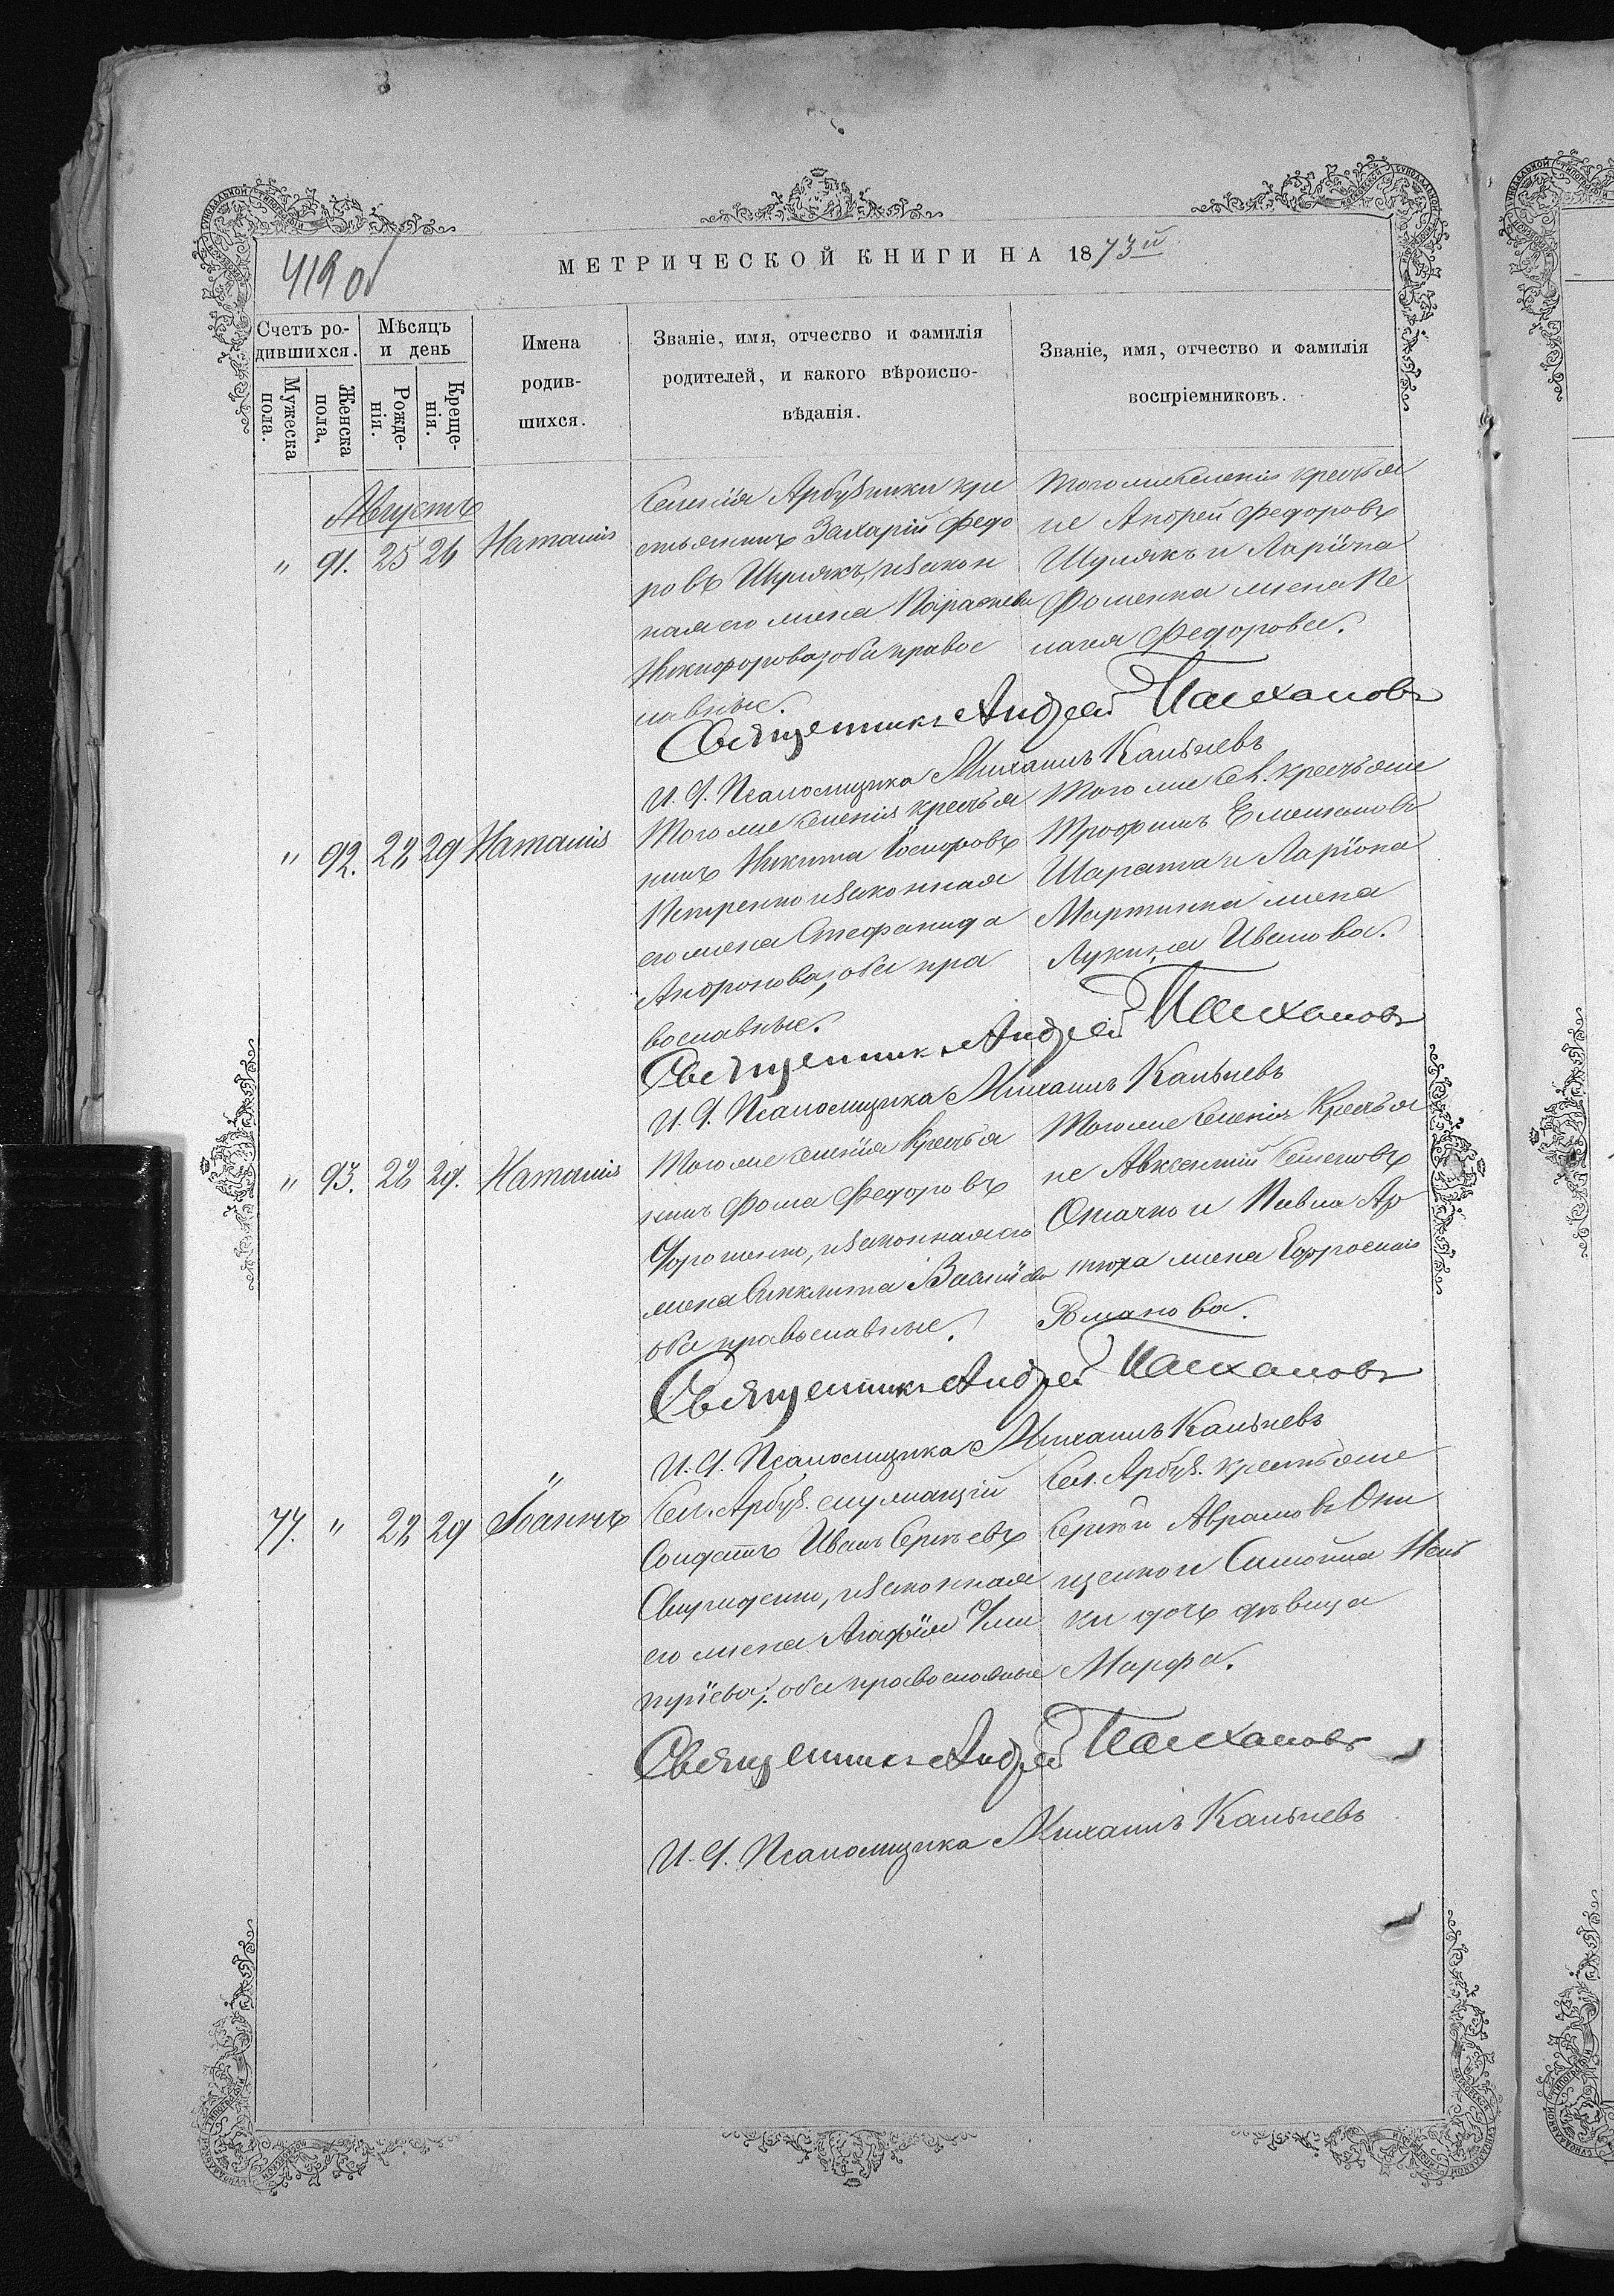 419 об
МЕТРИЧЕСКОЙ КНИГИ НА 1873й
Счетъ ро-
дившихся.
Мужеска
пола.
Женска
пола.
Мѣсяцъ
и день
Рожде-
нія.
Креще-
нія.
Имена
родив-
шихся.
Званіе, имя, отчество и фамилія
родителей, и какого вѣроиспо-
вѣданія.
Званіе, имя, отчество и фамилія
воспріемниковъ.
Августъ
" 91. 25 26 Наталія
Селенія Арбузинки кре
стьянинъ Захарій Федо
ровъ Шулякъ, и закон
ная его жена Параскева
Никифорова, оба правос
лавные.
Того же селенія крестья
не Андрей Федоровъ
Шулякъ и Ларіона
Фоменка жена Пе
лагея Федорова.
Священникъ Андрей
И. д. Псаломщика Михаилъ
" 92. 28 29 Наталія
Того же селенія крестья
нинъ Никита Іосифовъ
Петренко и законная
его жена Стефанида
Андронова, оба пра
вославные.
Того же сел. крестьяне
Трофимъ Емельяновъ
Шарата и Ларіона
Мартынка жена
Лукия Иванова.
Священникъ Андрей
И. д. Псаломщика Михаилъ
" 93. 28 29. Наталія
Того же селенія крестья
нинъ Фома Федоровъ
и законная его
жена Синклита
оба православные.
Того же селенія Крестья
не Авксентій Семеновъ
и Павла Ар
тюха жена Ефросинія
Романова.
Священникъ Андрей
И. д. Псаломщика Михаилъ
"
77. " 28 29 Іоаннъ
Сел. Арбуз. служащій
Солдатъ Иванъ Сергѣевъ
Свириденко, и законная
его жена Агафія Дми
тріева, оба православные
Сел. Арбуз. крестьяне
Сергѣй Аврамовъ Они
щенко и Самойла
ки дочь дѣвица
Марфа.
Священникъ Андрей
И. д. Псаломщика Михаилъ